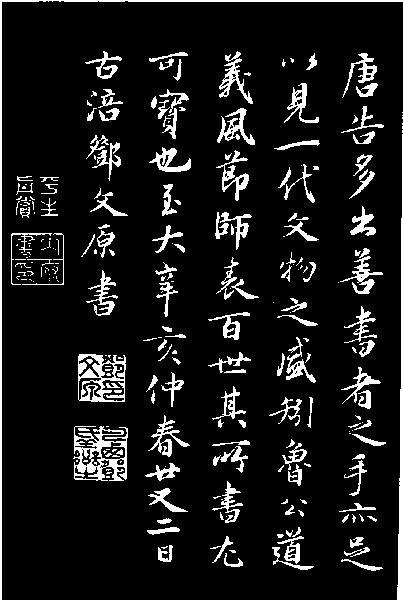 唐告多出善書者之手亦足
以見一代文物之盛矧魯公道
義風節師表百世其所書尤
可寶也至大辛亥仲春廿又二日
古涪鄧文原書